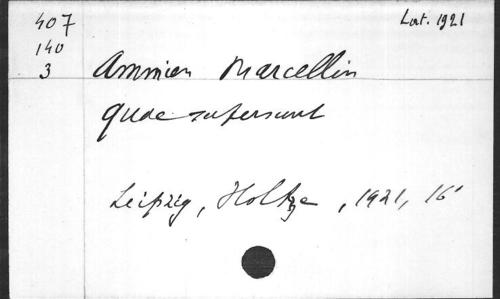 407
140
3
Lat. 1921
Ammien Marcellin
quae supersunt
Leipzig, Holtze, 1921, 16°